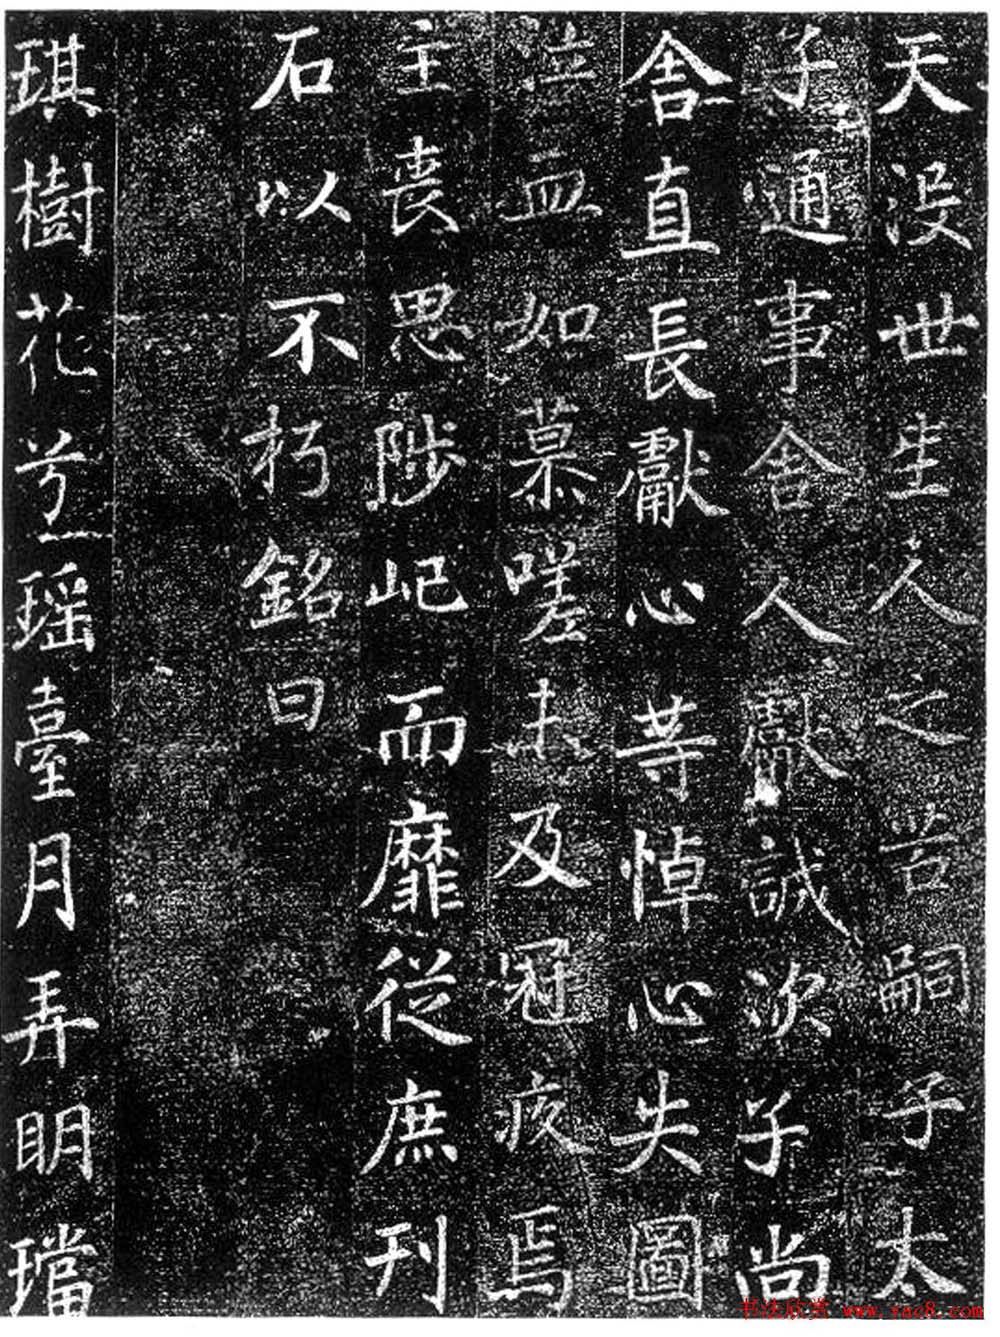 天没世生人之苦嗣子太
子通事舍人獻誠次子尚
舍直長獻心等悼心失圖
泣血如慕嗟未及冠疚焉
主喪思陟屺而靡從庶刊
石以不朽銘曰
琪樹花兮瑶臺月弄明璫
书法欣赏 www.yac8.com